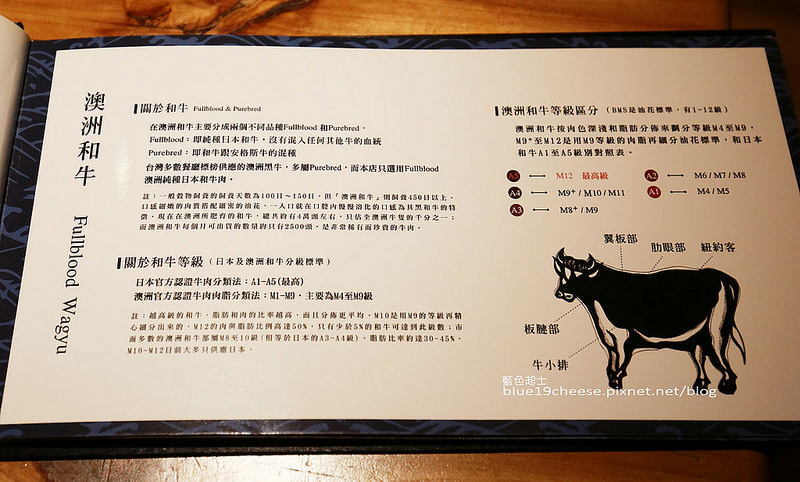 澳洲和牛 Fullblood Wagyu
關於和牛 Fullblood & Purebred
在澳洲和牛主要分成兩個不同品種Fullblood 和Purebred。
Fullblood：即純種日本和牛，沒有混入任何其他牛的血統
Purebred：即和牛跟安格斯牛的混種
台灣多數餐廳標榜供應的澳洲黑牛，多屬Purebred，而本店只選用Fullblood
澳洲純種日本和牛肉。
註：一般穀物飼養的飼養天數為100日～150日，但「澳洲和牛」則飼養450日以上，
口感細嫩的肉質搭配綿密的油花，一入口就在口腔內慢慢溶化的口感為其黑和牛的特
徵，現在在澳洲所肥育的和牛，總共約有4萬頭左右，只佔全澳洲牛隻的千分之一；
而澳洲和牛每個月可出貨的數量約只有2500頭，是非常稀有而珍貴的牛肉。
關於和牛等級（日本及澳洲和牛分級標準）
日本官方認證牛肉分類法：A1-A5(最高)
澳洲官方認證牛肉肉脂分類法：M1-M9，主要為M4至M9級
註：越高級的和牛，脂肪和肉的比率越高，而且分佈更平均，M10是用M9的等級再精
心細分出來的，M12的肉與脂肪比例高達50%，只有少於5%的和牛可達到此級數；市
面多數的澳洲和牛都屬M8至10級(相等於日本的A3-A4級)，脂肪比率約達30-45%。
M10-M12目前大多只供應日本。
澳洲和牛等級區分（BMS是油花標準，有1-12級）
澳洲和牛按肉色深淺和脂肪分佈來劃分等級M4至M9，
M9⁺至M12是用M9等級的肉脂再細分油花標準，和日本
和牛A1至A5級別對照表。
A5 ⟷ M12 最高級
A2 ⟷ M6 / M7 / M8
A4 ⟷ M9⁺ / M10 / M11
A1 ⟷ M4 / M5
A3 ⟷ M8⁺ / M9
翼板部
肋眼部
紐約客
板腱部
牛小排
藍色起士
blue19cheese.pixnet.net/blog